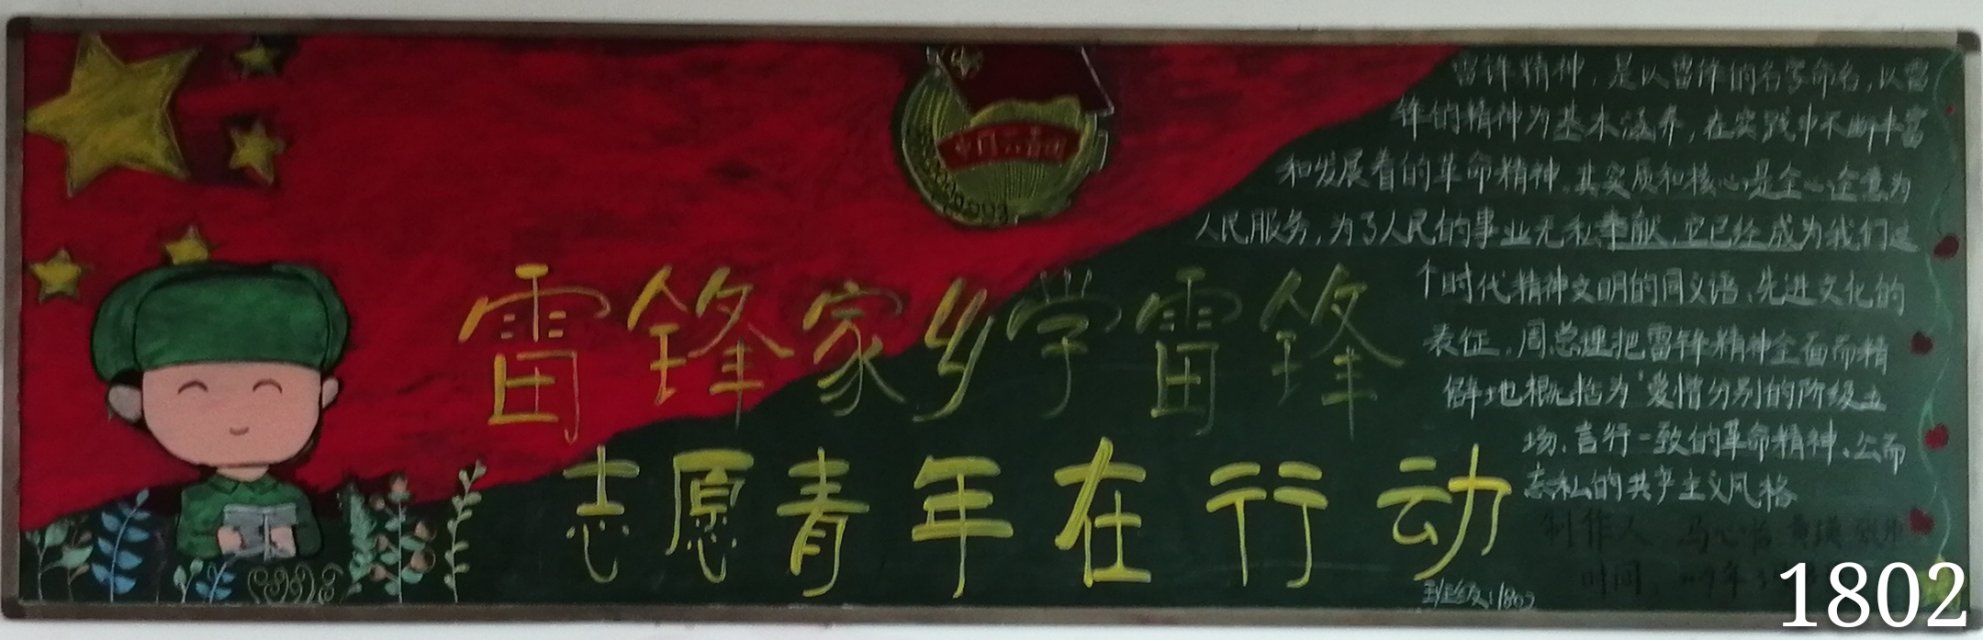 中国共青团
雷锋家乡学雷锋
志愿青年在行动
雷锋精神，是以雷锋的名字命名，以雷
锋的精神为基本涵养，在实践中不断丰富
和发展着的革命精神，其实质和核心是全心全意为
人民服务，为了人民的事业无私奉献，它已经成为我们这
个时代精神文明的同义语、先进文化的
表征。周总理把雷锋精神全面而精
辟地概括为"爱憎分明的阶级立
场、言行一致的革命精神、公而
忘私的共产主义风格
制作人
时间
班级：1802
1802